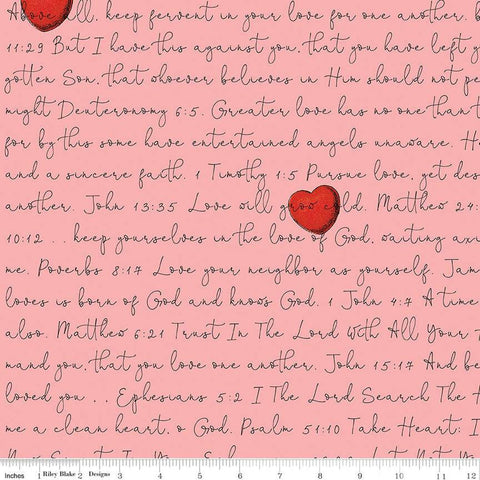 Above All, keep fervent in your love for one another.
11:29 But I have this against you, that you have left y
gotten Son, that whoever believes in Him should not pe
might Deuteronomy 6:5. Greater love has no one than t
for by this some have entertained angels unaware. H
and a sincere faith. 1 Timothy 1:5 Pursue love, yet des
another. John 13:35 Love will grow cold. Matthew 24:
10:12 . . keep yourselves in the love of God, waiting anxi
me. Poverbs 8:17 Love your neighbor as yourself. Jam
loves is born of God and knows God. 1 John 4:7 A time
also. Matthew 6:21 Trust In The Lord With All Your
mand you, that you love one another. John 15:17 And be
loved you . . Ephesians 5:2 I The Lord Search The H
me a clean heart, o God. Psalm 51:10 Take Heart; I
inches 1 Riley Blake 2 Designs 3 4 5 6 7 8 9 10 11 12